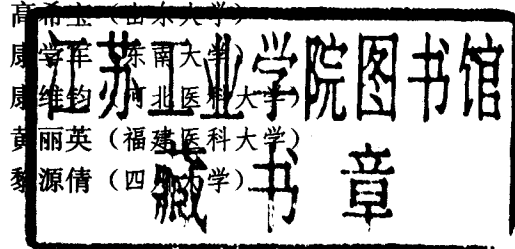 高希宝（山东大学）
康学军（东南大学）
康维钧（河北医科大学）
黄丽英（福建医科大学）
黎源倩（四川大学）
江苏工业学院图书馆
藏书章